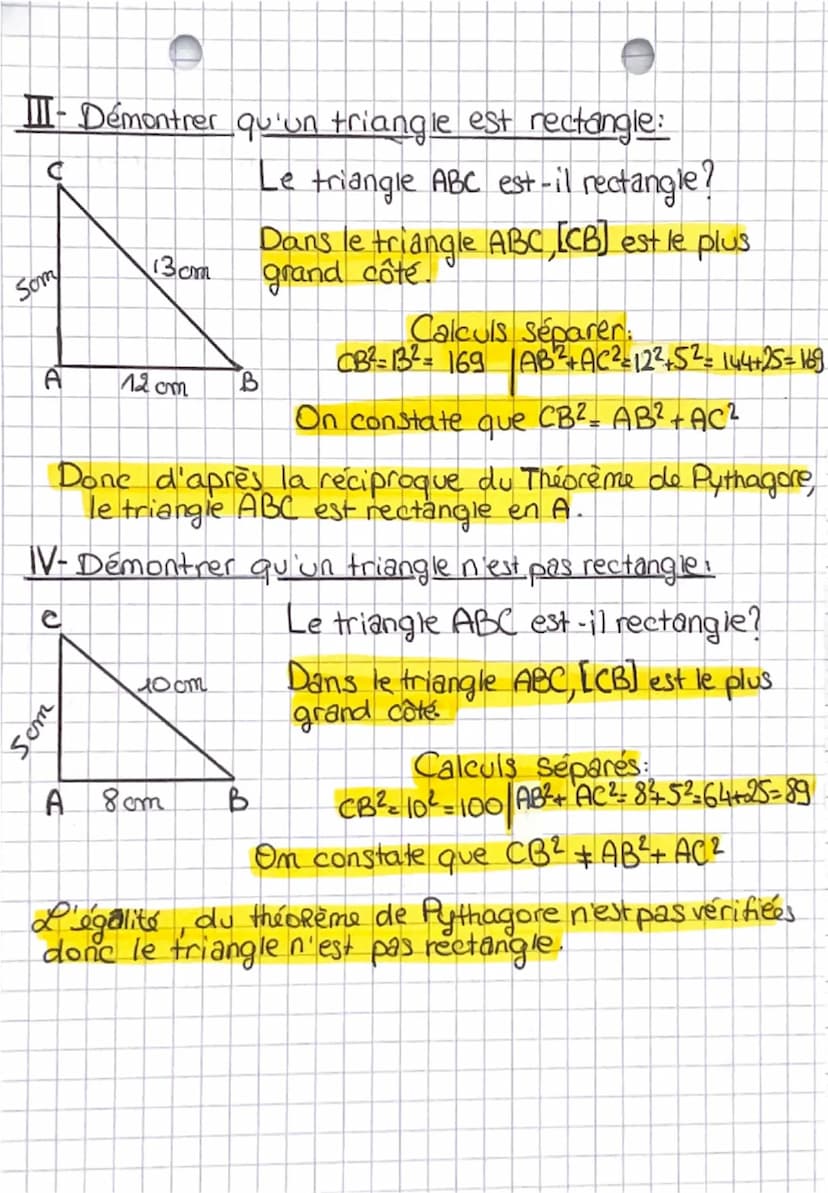 III- Démontrer qu'un triangle est rectangle:
C
Le triangle ABC est-il rectangle?
Dans le triangle ABC, [CB] est le plus
grand côté.
13cm
5cm
Calculs séparer:
CB²=13²= 169 | AB²+AC²=12²+5²= 144+25=169
A
12cm
B
On constate que CB²= AB²+AC²
Donc d'après la réciproque du Théorème de Pythagore,
le triangle ABC est rectangle en A.
IV- Démontrer qu'un triangle n'est pas rectangle:
C
Le triangle ABC est-il rectangle?
Dans le triangle ABC, [CB] est le plus
grand côté.
10cm
5cm
Calculs séparés:
CB²=10²=100 | AB²+ AC²= 8²+5²=64+25=89
A
8cm
B
On constate que CB² ≠ AB²+ AC²
L'égalité, du théorème de Pythagore n'est pas vérifiées
donc le triangle n'est pas rectangle.